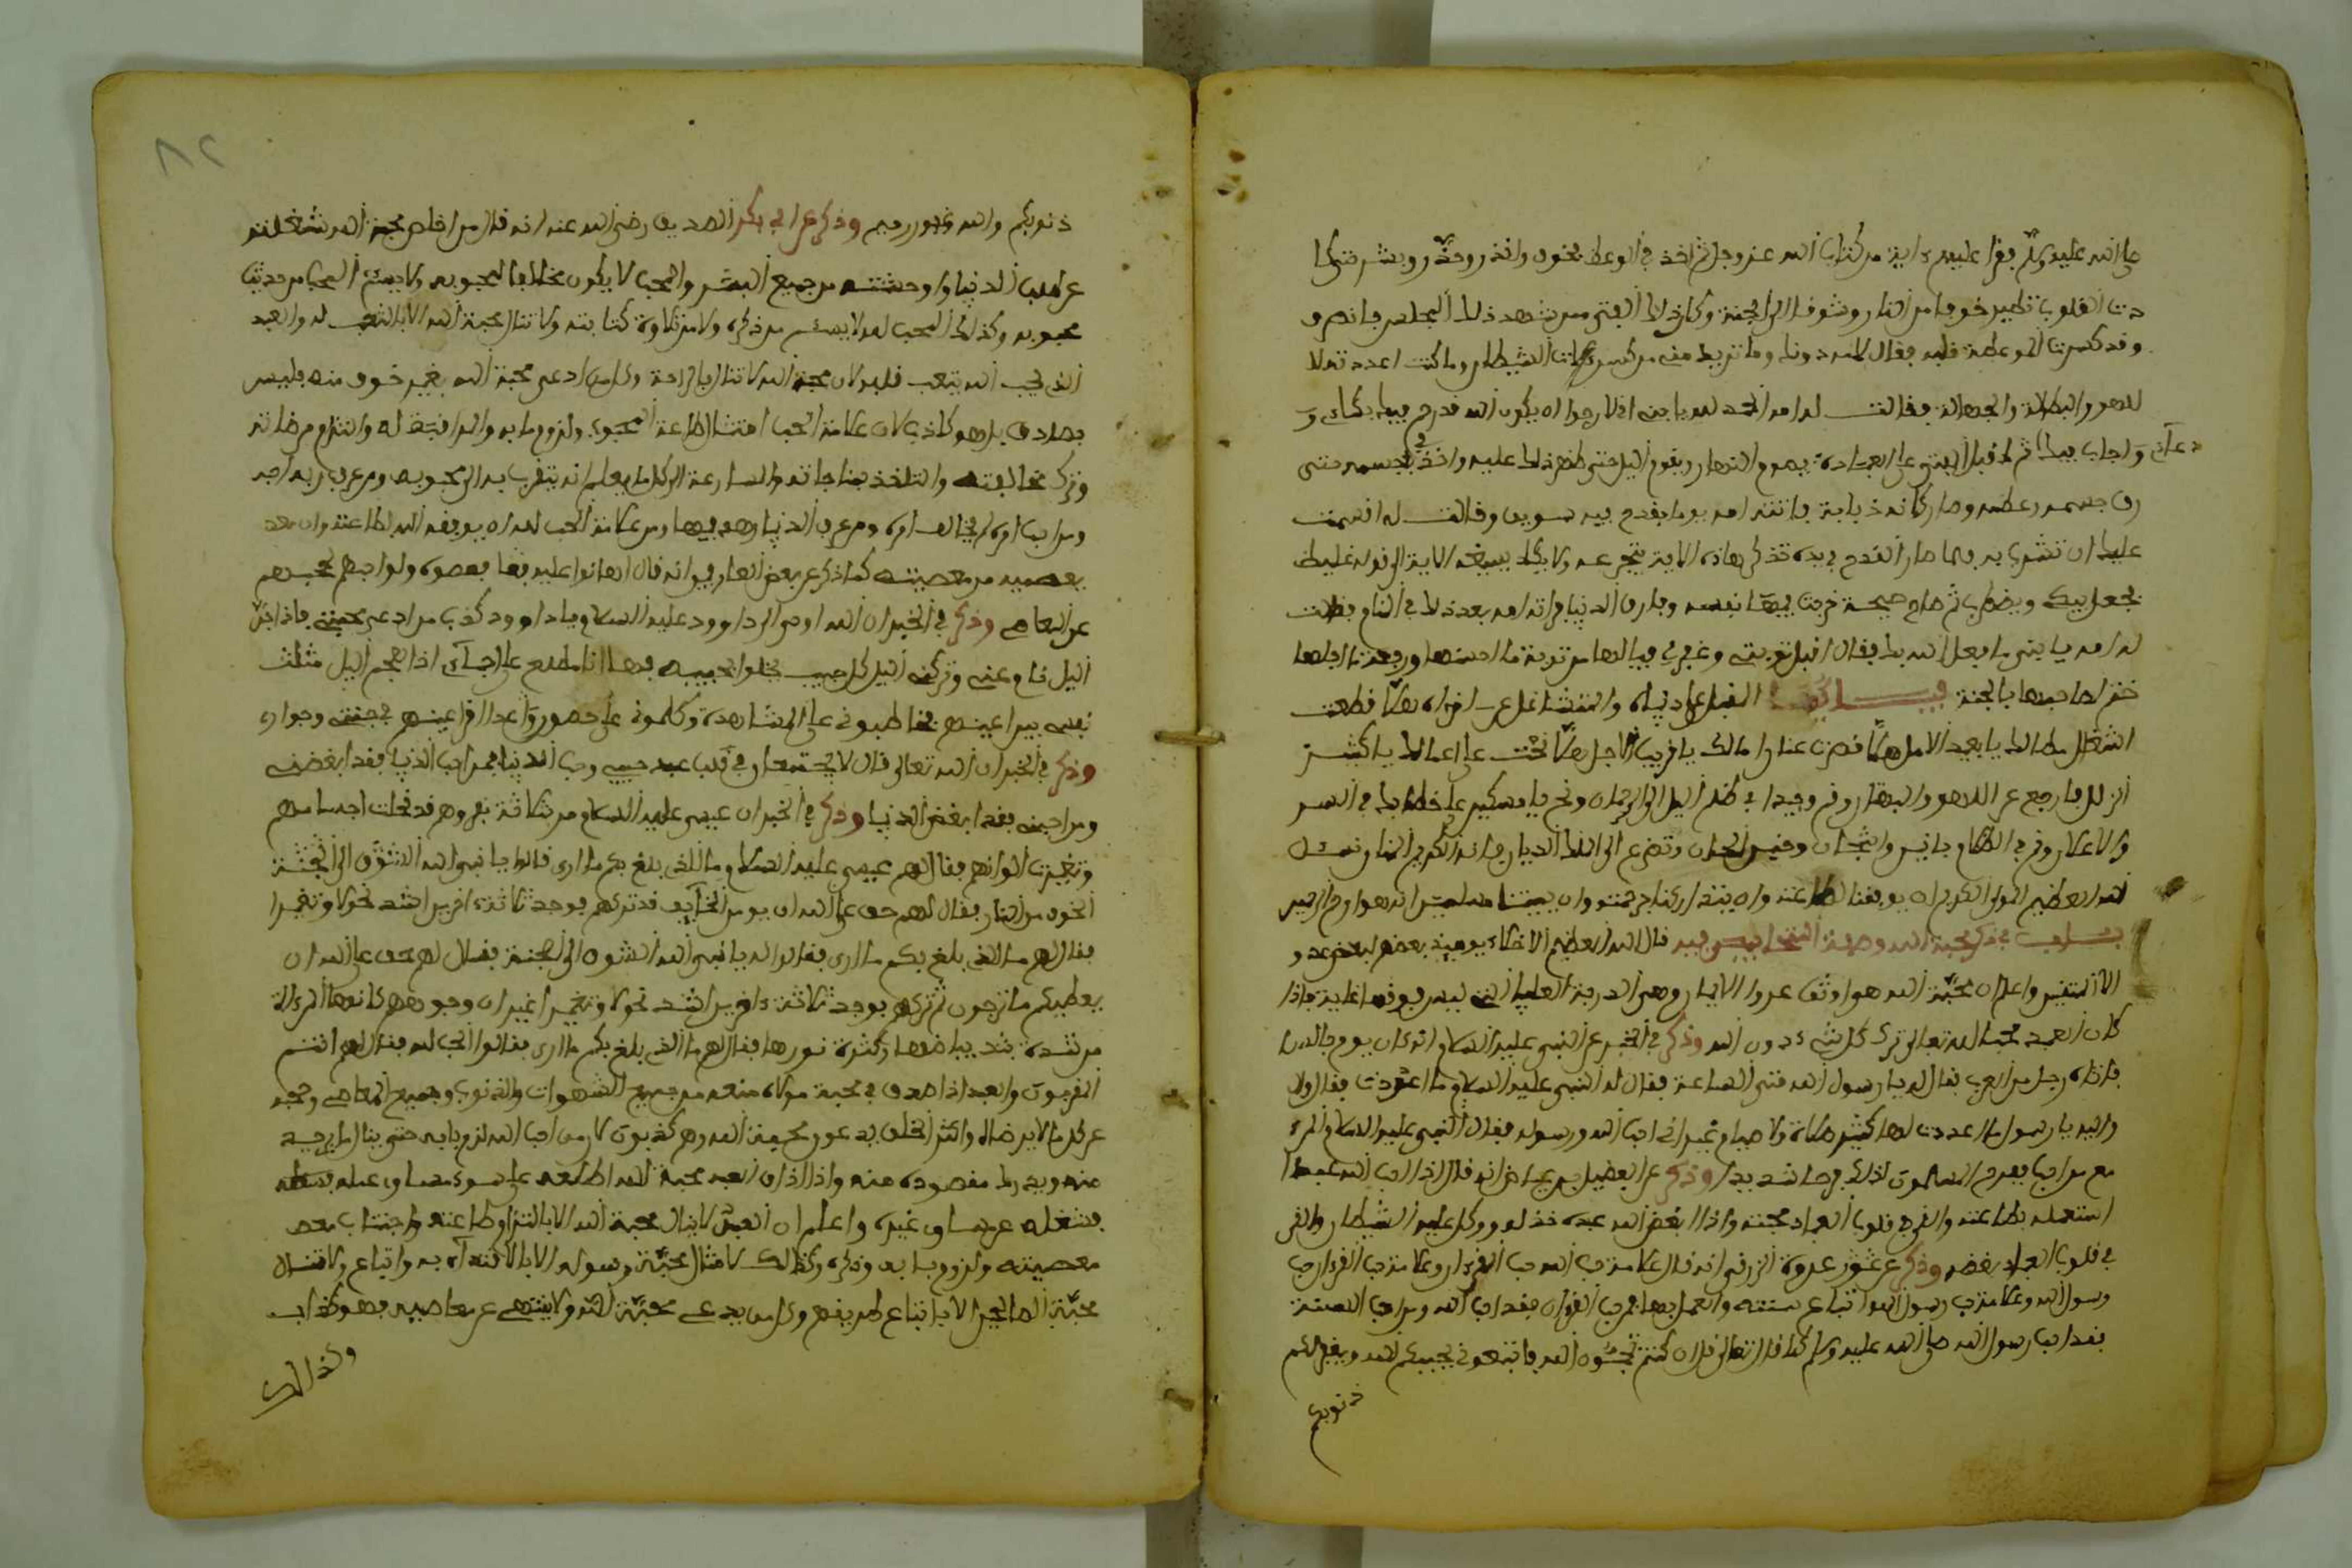 صلى الله عليه وسلم يقرا عليهم ءاية من كتاب الله عز وجل ثم اخذ في الوعظ يخوف وانذر وحذر ويشر حتى كا
دت القلوب تطير خوفا من النار وشوقا الى الجنة وكان ذلك الفتى ممن شهد ذلك المجلس فانصرف
وقد كسرت الموعظة قلبه فقال لامه دونك وما تريد مني من كسر الشيطان وما كنت اعدد تلا
للهو والبطالة والجهالة فقالت له امه الحمد لله يا بني اني لارجوا ان يكون الله قد رحم فيك بكائ و
دعآئ واجاب فيك ثم اقبل الفتى على العبادة يصوم النهار ويقوم اليل حتى ظهر ذلك عليه واخذ في جسمه حتى
رق جسمه وعظمه وصار كانه ذبابة فاتته امه يوما بقدح فيه سويق وقالت له اقسمت
عليك ان تشرب فلما صار القدح في يده تذكر هاذه الاية يتجرعه ولا يكاد يسيغه الاية الى قوله غليظ
فجعل يبكي ويضطرب ثم صاح صيحة خرجت فيها نفسه وفارق الدنيا فراته امه بعد ذلك في المنام فقالت
له امه يا بني ما فعل الله بك فقال اقبل توبتي وغفر لي فيالها من توبة ما احسنها ورجعة ما اجلها
ختم لصاحبها بالجنة المقبل على دنياه والمتشاغل عن اخراه هلا قطعت
اشغال مطالك يا بعيد الامل هلا قصرت عنان امالك يا قريب الاجل هلا نحت على اعمالك يا كثير
الزلل فارجع عن اللهو والبطار وقم وحيدا في ظلم اليل الى الرحمان ونح يا مسكين على خطاياك في السر
والاعلان وقم في الظلام يا انيس واشجان وفيض الجفان وتضرع الى الملك الديان فانه الكريم المنان نسئل
الله العظيم المولى الكريم ان يوفقنا لطاعته وان يتداركنا برحمته وان يميتنا مسلمين انه هو ارحم الراحمين
في ذكر محبة الله وصفة المتحابين فيه قال الله العظيم الاخلاء يومئذ بعضهم لبعض عدو
الا المتقين واعلم ان محبة الله هو اوثق عروا الايمان وهي الدرجة العليا التي ليس فوقها غاية فاذا
كان العبد محبا لله تعالى ترك كل شيء دون الله وذكر في الخبر عن النبي عليه السلام انه كان يوم جالسا
فاتاه رجل من العرب فقال له يا رسول الله متى الساعة فقال له النبي عليه السلام ما اعددت لها فقال لا
والله يا رسول الله ما اعددت لها كثير صلاة ولا صيام غير اني احب الله ورسوله فقال النبي عليه السلام المرء
مع من احب ففرح المسلمون لذلك فرحا شديدا وذكر عن الفضيل بن عياض انه قال اذا احب الله عبدا
استعمله بطاعته والقى في قلوب العباد محبته واذا ابغض الله عبده خذله ووكل عليه الشيطان والقى
في قلوب العباد بغضه وذكر عن عروة الرقي انه قال علامة حب الله حب القرءان وعلامة حب القرءان حب
رسول الله وعلامة حب رسول الله اتباع سنته والعمل بها فمن حب القرءان فقد احب الله ومن احب السنة
فقد احب رسول الله صلى الله عليه وسلم كما قال تعالى قل ان كنتم تحبون الله فاتبعوني يحببكم الله ويغفر لكم
ذنوبكم
ذنوبكم والله غفور رحيم وذكر عن ابي بكر الصديق رضي الله عنه انه قال من اخلص محبة الله شغلته
عن طلب الدنيا واوحشته من جميع البشر والمحب لا يكون مخالفا لمحبوبه ولا يسئم المحب من حديث
محبوبه وكذلك المحب لله لا يسئم من ذكره ولا من تلاوة كتابته ولا تنال محبة الله الا بالتعب له والعبد
الذي يحب الله يتعب قلبه لان محبة الله لا تنال بالراحة وكل من ادعى محبة الله بغير خوف منه فليس
بصادق بل هو كاذب لان علامة الحب امتثال طاعة المحبوب ولزوم بابه والمراقبة له والتزام مرضاته
وترك مخالفته والتلذذ بمناجاته والمسارعة الى كل ما يعلم انه يتقرب به الى محبوبه ومن عرف ربه احبه
ومن احب امره لم يخالف امره ومن عرف الدنيا زهد فيها ومن علامة الحب لله ان يوفقه الله لطاعته وان بعد
يعصمه من معصيته كما ذكر عن بعض العارفين انه قال هانوا عليه فقا فعصوه ولو احبهم لحبسهم
عن المعاصي وذكر في الخبر ان الله اوحى الى داوود عليه السلام يا داوود كذب من ادعى محبتي فاذا جن
اليل نام عني وترك اليل كل حبيب يخلوا بحبيبه فها انا مطلع على احبائي اذا هجم اليل مثلت
نفسي بين اعينهم يخاطبوني على المشاهدة وكلموني على حضوري وغدا اقر اعينهم في جنتي وجواري
وذكر في الخبر ان الله تعالى قال لا يجتمعان في قلب عبد حبي وحب الدنيا فمن احب الدنيا فقد ابغضني
ومن احبني فقد ابغض الدنيا وذكر في الخبر ان عيسى عليه السلام مر بثلاثة نفر وهم قد نحلت اجسامهم
وتغيرت الوانهم فقال لهم عيسى عليه السلام ما الذي بلغ بكم ما ارى قالوا يا نبي الله الشوق الى الجنة
الخوف من النار فقال لهم حق على الله ان يومن الخآئف قد تركهم فوجد ثلاثة ءاخرين اشد نحولا وتغيرا
فقال لهم ما الذي بلغ بكم ما ارى فقالوا له يا نبي الله الشوق الى الجنة فقال لهم حق على الله ان
يعطيكم ما ترجون ثم تركهم فوجد ثلاثة ءاخرين اشد نحولا وتغيرا غير ان وجوههم كانها المراة
من شدة بياضها وكثرة نورها فقال لهم ما الذي بلغ بكم ما ارى فقالوا الحب لله فقال لهم انتم
المقربون والعبد اذا صدق في محبة مولاه منعه من جميع الشهوات والذنوب وجميع المعاصي وحجبه
عن كل ما لا يرضاه واكثر الخلق يدعون محبة الله وهم كاذبون كل من احب الله لزم بابه حتى ينال ما يرجيه
منه ويدرك مقصوده منه واذا اراد العبد محبة الله اطلعه على سوء مساوى عمله
فشغله عن مساوى غيره واعلم ان العبد لا ينال محبة الله الا بالتزام طاعته واجتناب
معصيته ولزوم بابه وذكره وكذالك لا تنال محبة رسوله الا بالاقتدآء به واتباع ولا تنال
محبة الصالحين الا باتباع طريقهم وكل من يدعي محبة الله ولا ينتهي عن معاصيه فهو كذاب
وكذالك
٨٢